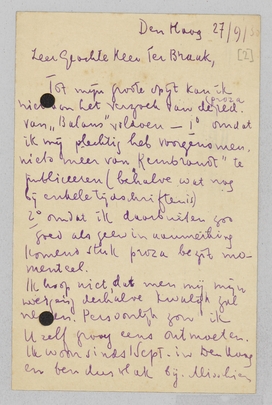 Den Haag 27/9/30
[2]
Zeer Geachte Heer Ter Braak,
Tot mijn groote spijt kan ik
niet aan het verzoek van de red.
(proza)
van „Balans" voldoen — 1° omdat
ik mij plechtig heb voorgenomen
niets meer van Rembrandt" te
publiceeren (behalve wat nog
bij enkele tijdschriften is)
2° omdat ik daarbuiten zoo
goed als geen in aanmerking
komend stuk proza bezit mo-
menteel.
Ik hoop niet, dat men mij mijn
weigering derhalve kwalijk zal
nemen. Persoonlijk zou ik
U zelf graag eens ontmoeten.
Ik woon sinds 1 Sept. in Den Haag
en ben dus vlak bij. Misschien